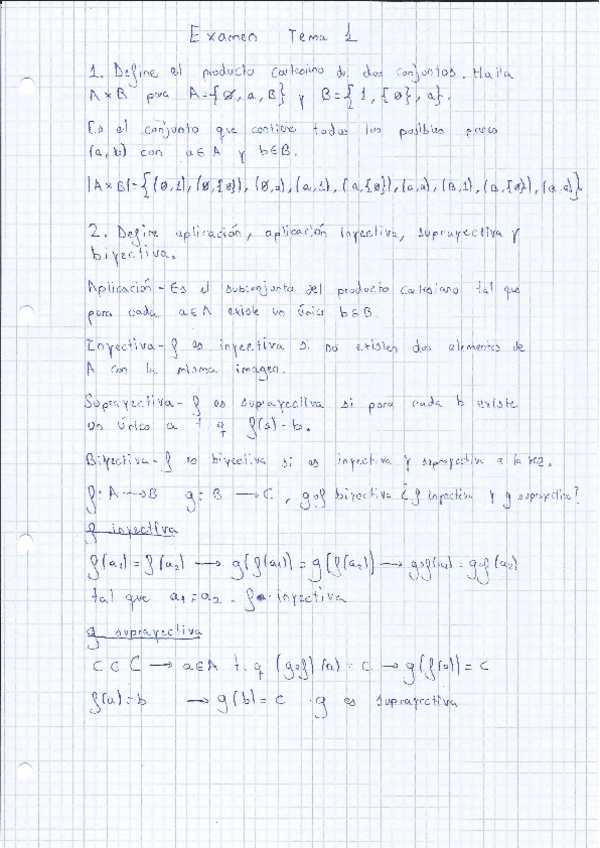 Examen Tema 1
1. Define el producto cartesiano de dos conjuntos. Halla
A × B para A={∅, a, B} y B={1, {∅}, a}.
Es el conjunto que contiene todos los posibles pares
(a, b) con a∈A y b∈B.
|A×B|={(∅,1), (∅,{∅}), (∅,a), (a,1), (a,{∅}), (a,a), (B,1), (B,{∅}), (B,a)}.
2. Define aplicación, aplicación inyectiva, suprayectiva y
biyectiva.
Aplicación - Es el subconjunto del producto cartesiano tal que
para cada a∈A existe un único b∈B.
Inyectiva - f es inyectiva si no existen dos elementos de
A con la misma imagen.
Suprayectiva - f es suprayectiva si para cada b existe
un único a t. q f(a) = b.
Biyectiva - f es biyectiva si es inyectiva y suprayectiva a la vez.
f: A → B g: B → C, g∘f biyectiva ¿f inyectiva y g suprayectiva?
f inyectiva
f(a₁) = f(a₂) → g(f(a₁)) = g(f(a₂)) → g∘f(a₁) = g∘f(a₂)
tal que a₁ = a₂. f inyectiva
g suprayectiva
c∈C → a∈A t. q (g∘f)(a) = c → g(f(a)) = c
f(a) = b → g(b) = c . g es suprayectiva